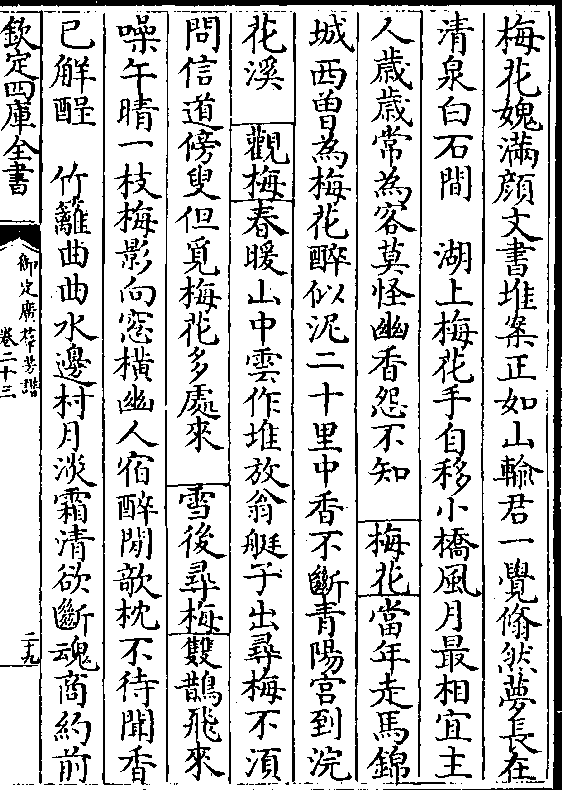 梅花媿滿顔文書堆案正如山輸君一覺翛然夢長在
清泉白石間　湖上梅花手自移小橋風月最相宜主
人歳歳常為客莫怪幽香怨不知　梅花當年走馬錦
城西曽為梅花醉似泥二十里中香不斷青陽宫到浣
花溪　觀梅春暖山中雲作堆放翁艇子出尋梅不湏
問信道傍叟但覓梅花多處來　雪後尋梅雙鵲飛來
噪午晴一枝梅影向窓橫幽人宿醉閒欹枕不待聞香
已解酲　竹籬曲曲水邊村月淡霜清欲斷魂商約前
欽定四庫全書
御定廣羣芳譜
卷二十三
二十九